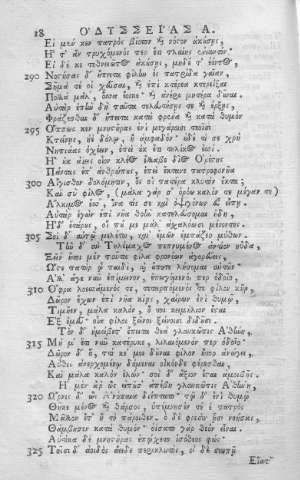 18 ΟΔΥΣΣΕΙΑΣ Α.
Εἰ μέν κεν πατρὸς βίοτον καὶ νόστον ἀκούσῃς,
Ἦ τ' ἂν τρυχόμενός περ ἔτι τλαίης ἐνιαυτόν·
Εἰ δέ κε τεθνειῶτος ἀκούσῃς, μηδέ τ' ἐόντος,
290 Νοστήσας δ' ἔπειτα φίλην ἐς πατρίδα γαῖαν,
Σῆμά τέ οἱ χεῦσαι, καὶ ἐπὶ κτέρεα κτερεΐξαι
Πολλὰ μάλ', ὅσσα ἔοικε· καὶ ἀνέρι μητέρα δοῦναι.
Αὐτὰρ ἐπὴν δὴ ταῦτα τελευτήσῃς τε καὶ ἔρξῃς,
Φράζεσθαι δὴ ἔπειτα κατὰ φρένα καὶ κατὰ θυμὸν
295 Ὅππως κε μνηστῆρας ἐνὶ μεγάροισι τεοῖσι
Κτείνῃς, ἠὲ δόλῳ, ἢ ἀμφαδόν· οὐδέ τί σε χρὴ
Νηπιάας ὀχέειν, ἐπεὶ οὐκ ἔτι τηλίκος ἐσσί.
Ἦ οὐκ ἀΐεις οἷον κλέος ἔλλαβε δῖος Ὀρέστης
Πάντας ἐπ' ἀνθρώπους, ἐπεὶ ἔκτανε πατροφονῆα
300 Αἴγισθον δολόμητιν, ὅς οἱ πατέρα κλυτὸν ἔκτα;
Καὶ σὺ φίλος, (μάλα γάρ σ' ὁρόω καλόν τε μέγαν τε)
Ἄλκιμος ἔσσ', ἵνα τίς σε καὶ ὀψιγόνων εὖ εἴπῃ.
Αὐτὰρ ἐγὼν ἐπὶ νῆα θοὴν κατελεύσομαι ἤδη,
Ἠδ' ἑτάρους, οἵ πού με μάλ' ἀσχαλόωσι μένοντες.
305 Σοὶ δ' αὐτῷ μελέτω, καὶ ἐμῶν ἐμπάζεο μύθων.
Τὴν δ' αὖ Τηλέμαχος πεπνυμένος ἀντίον ηὔδα,
Ξεῖν' ἤτοι μὲν ταῦτα φίλα φρονέων ἀγορεύεις,
Ὥς τε πατὴρ ᾧ παιδὶ, καὶ οὔποτε λήσομαι αὐτῶν
Ἀλλ' ἄγε νῦν ἐπίμεινον, ἐπειγόμενός περ ὁδοῖο,
310 Ὄφρα λοεσσάμενός τε, τεταρπόμενός τε φίλον κῆρ,
Δῶρον ἔχων ἐπὶ νῆα κίῃς, χαίρων ἐνὶ θυμῷ,
Τιμῆεν, μάλα καλὸν, ὅ τοι κειμήλιον ἔσται
Ἐξ ἐμεῦ, οἷα φίλοι ξεῖνοι ξείνοισι διδοῦσι.
Τὸν δ' ἠμείβετ' ἔπειτα θεὰ γλαυκῶπις Ἀθήνη,
315 Μή μ' ἔτι νῦν κατέρυκε, λιλαιόμενόν περ ὁδοῖο·
Δῶρον δ' ὅ, ττί κέ μοι δοῦναι φίλον ἦτορ ἀνώγει,
Αὖθις ἀνερχομένῳ δόμεναι οἶκόνδε φέρεσθαι,
Καὶ μάλα καλὸν ἑλών· σοὶ δ' ἄξιον ἔσται ἀμοιβῆς.
Ἡ μὲν ἄρ' ὣς εἰποῦσ' ἀπέβη γλαυκῶπις Ἀθήνη,
320 Ὄρνις δ' ὣς ἀνοπαῖα διέπτατο· τῷ δ' ἐνὶ θυμῷ
Θῆκε μένος καὶ θάρσος, ὑπέμνησέν τέ ἑ πατρὸς
Μᾶλλον ἔτ' ἢ τὸ πάροιθεν. ὁ δὲ φρεσὶν ᾗσι νοήσας,
Θάμβησεν κατὰ θυμόν· ὀΐσατο γὰρ θεὸν εἶναι.
Αὐτίκα δὲ μνηστῆρας ἐπῴχετο ἰσόθεος φώς·
325 Τοῖσι δ' ἀοιδὸς ἄειδε περικλυτὸς, οἱ δὲ σιωπῇ
Εἵατ'